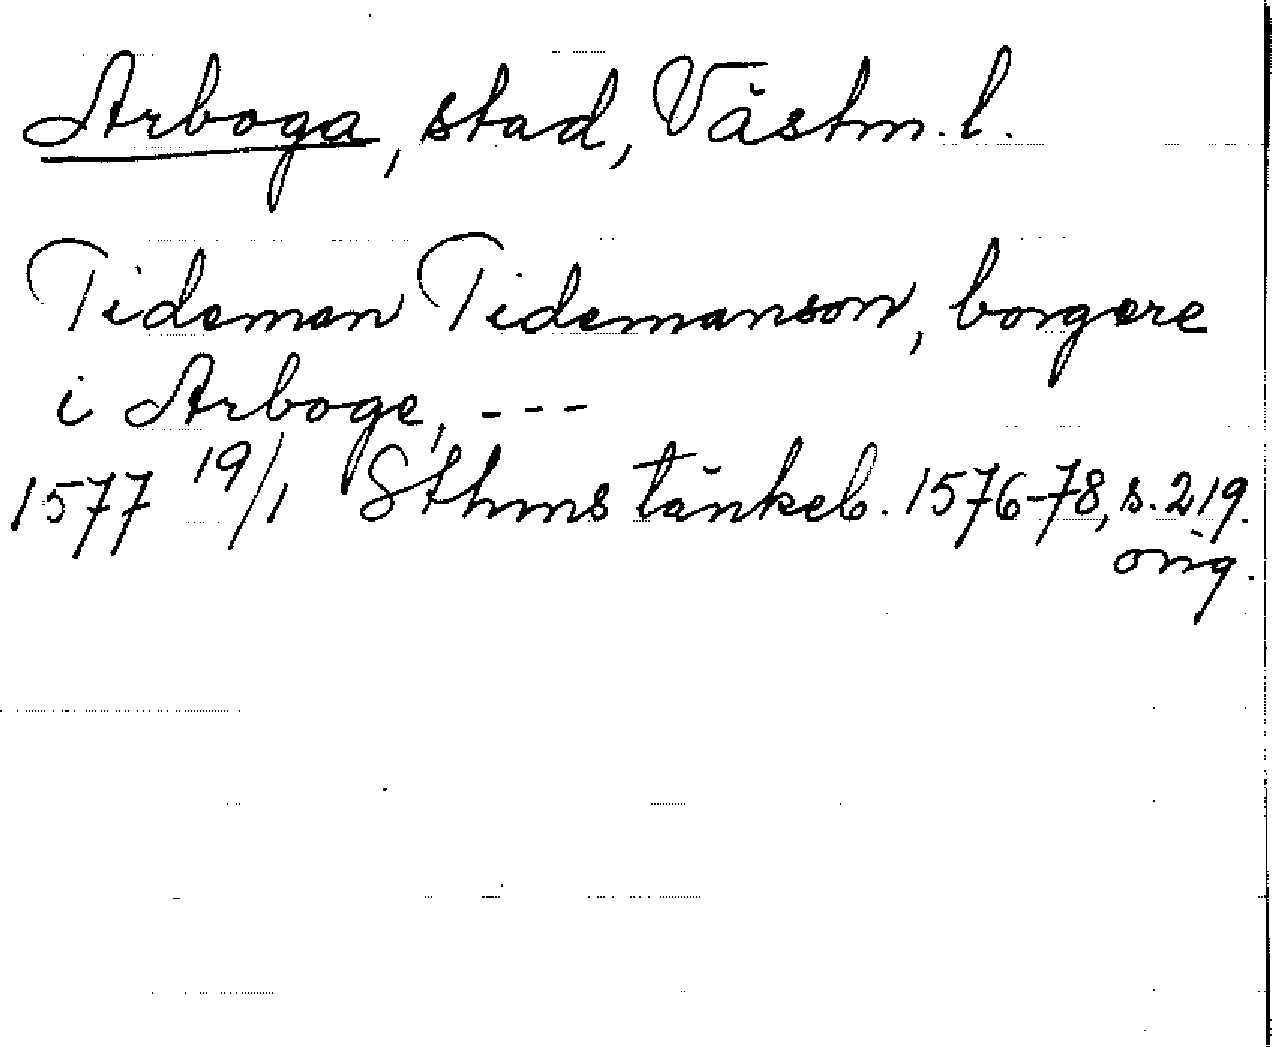 Arboga, stad, Västm. l.
Tideman Tidemanson, borgere
i Arboge, ---
1577 19/1 Sthms tänkeb. 1576-78, s. 219.
orig.